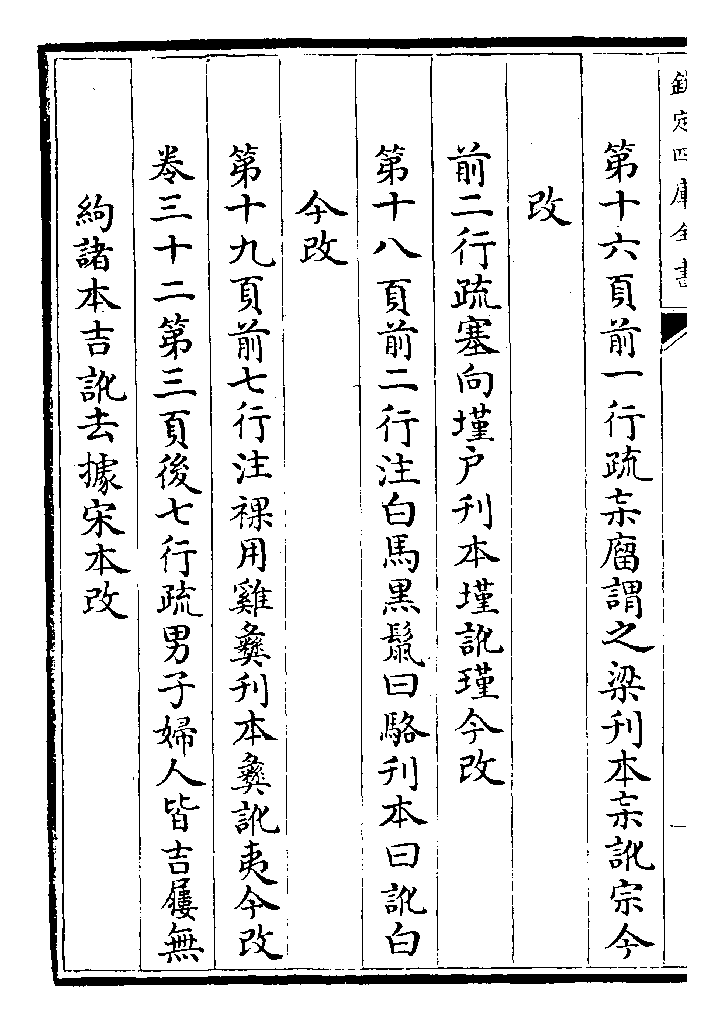 欽定四庫全書
第十六頁前一行疏杗廇謂之梁刊本杗訛宗今
改
前二行疏塞向墐户刊本墐訛瑾今改
第十八頁前二行注白馬黒鬛曰駱刊本曰訛白
今改
第十九頁前七行注祼用雞彝刊本彝訛夷今改
卷三十二第三頁後七行疏男子婦人皆吉屨無
絇諸本吉訛去據宋本改